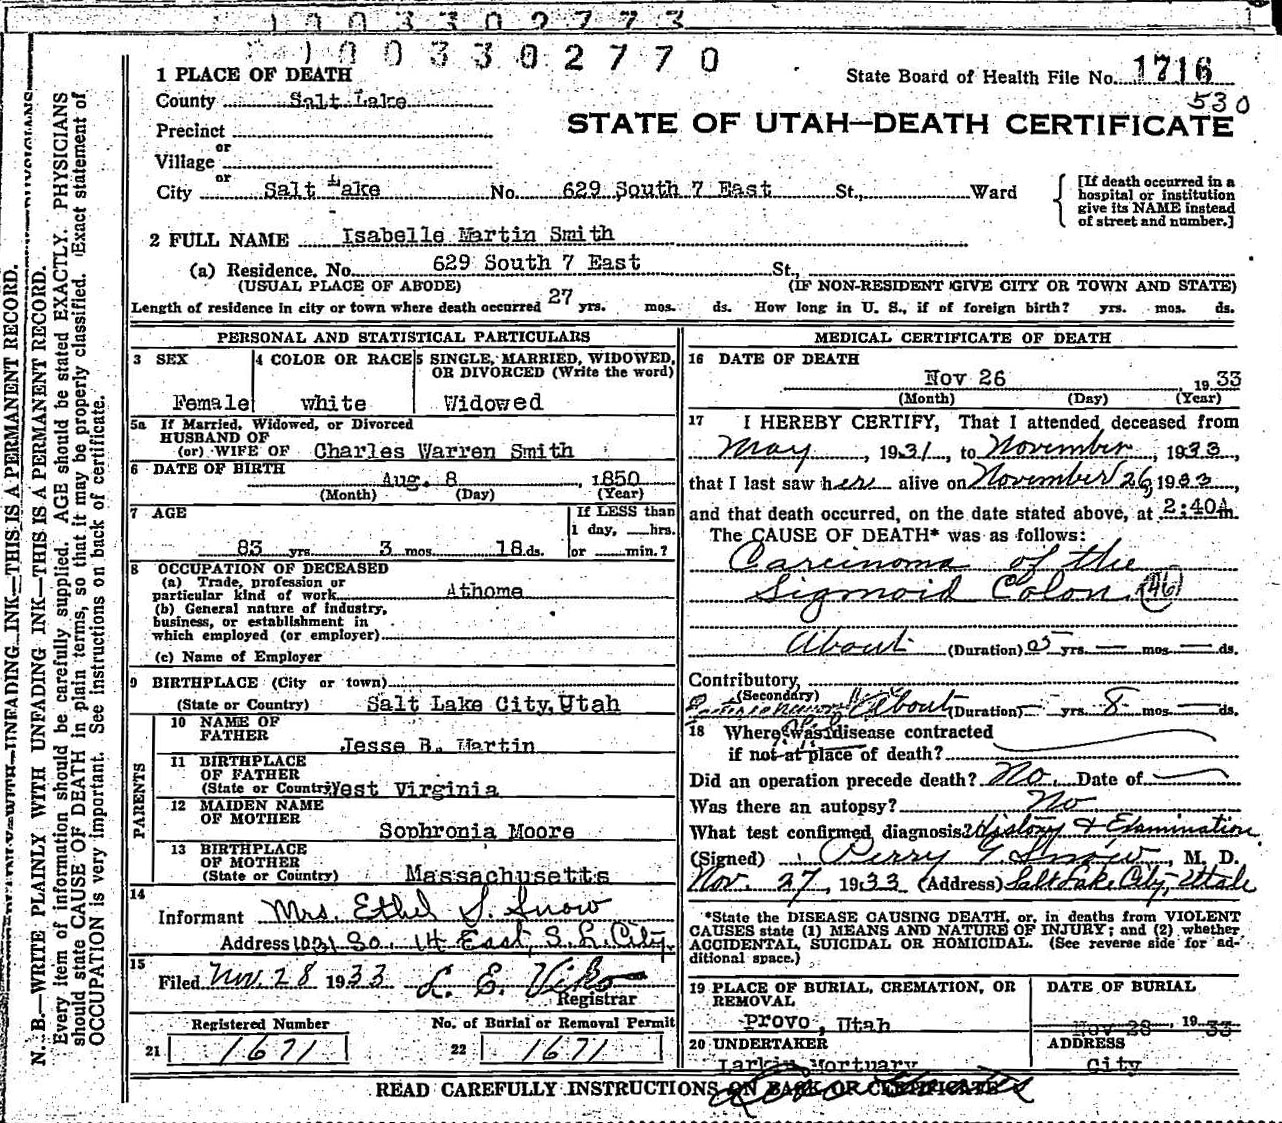 1003302773
1003302770
1 PLACE OF DEATH
State Board of Health File No. 1716
County Salt Lake
530
Precinct
STATE OF UTAH—DEATH CERTIFICATE
or
Village
or
City Salt Lake No. 629 South 7 East St., Ward
[If death occurred in a
hospital or institution
give its NAME instead
of street and number.]
2 FULL NAME Isabelle Martin Smith
(a) Residence. No. 629 South 7 East St.,
(USUAL PLACE OF ABODE) (IF NON-RESIDENT GIVE CITY OR TOWN AND STATE)
Length of residence in city or town where death occurred 27 yrs. mos. ds. How long in U. S., if of foreign birth? yrs. mos. ds.
PERSONAL AND STATISTICAL PARTICULARS
3 SEX
Female
4 COLOR OR RACE
white
5 SINGLE, MARRIED, WIDOWED,
OR DIVORCED (Write the word)
Widowed
5a If Married, Widowed, or Divorced
HUSBAND OF
(or) WIFE OF Charles Warren Smith
6 DATE OF BIRTH
Aug. 8, 1850
(Month) (Day) (Year)
7 AGE
83 yrs. 3 mos. 18 ds.
If LESS than
1 day, hrs.
or min.?
8 OCCUPATION OF DECEASED
(a) Trade, profession or
particular kind of work Athome
(b) General nature of industry,
business, or establishment in
which employed (or employer)
(c) Name of Employer
9 BIRTHPLACE (City or town)
(State or Country) Salt Lake City, Utah
PARENTS
10 NAME OF
FATHER
Jesse B. Martin
11 BIRTHPLACE
OF FATHER
(State or Country) West Virginia
12 MAIDEN NAME
OF MOTHER
Sophronia Moore
13 BIRTHPLACE
OF MOTHER
(State or Country) Massachusetts
14
Informant Mrs. Ethel S. Snow
Address 1031 So. 14 East, S. L. City.
15
Filed Nov. 28 1933 L. E. Viko
Registrar
Registered Number
21 1671
No. of Burial or Removal Permit
22 1671
MEDICAL CERTIFICATE OF DEATH
16 DATE OF DEATH
Nov 26, 1933
(Month) (Day) (Year)
17 I HEREBY CERTIFY, That I attended deceased from
May, 1931, to November, 1933,
that I last saw her alive on November 26, 1933,
and that death occurred, on the date stated above, at 2:40A m.
The CAUSE OF DEATH* was as follows:
Carcinoma of the
Sigmoid Colon. (46)
About (Duration) 5 yrs. — mos. — ds.
Contributory,
(Secondary)
About (Duration) — yrs. 8 mos. — ds.
18 Where was disease contracted
if not at place of death?
Did an operation precede death? No. Date of
Was there an autopsy? No
What test confirmed diagnosis? History & Examination
(Signed) Perry G. Snow, M. D.
Nov. 27, 1933 (Address) Salt Lake City, Utah
*State the DISEASE CAUSING DEATH, or, in deaths from VIOLENT
CAUSES state (1) MEANS AND NATURE OF INJURY; and (2) whether
ACCIDENTAL, SUICIDAL OR HOMICIDAL. (See reverse side for ad-
ditional space.)
19 PLACE OF BURIAL, CREMATION, OR
REMOVAL
Provo, Utah
DATE OF BURIAL
Nov 28, 1933
20 UNDERTAKER
Larkin Mortuary
ADDRESS
City
READ CAREFULLY INSTRUCTIONS ON BACK OF CERTIFICATE
N. B.—WRITE PLAINLY WITH UNFADING INK—THIS IS A PERMANENT RECORD.
Every item of information should be carefully supplied. AGE should be stated EXACTLY. PHYSICIANS
should state CAUSE OF DEATH in plain terms, so that it may be properly classified. Exact statement of
OCCUPATION is very important. See instructions on back of certificate.